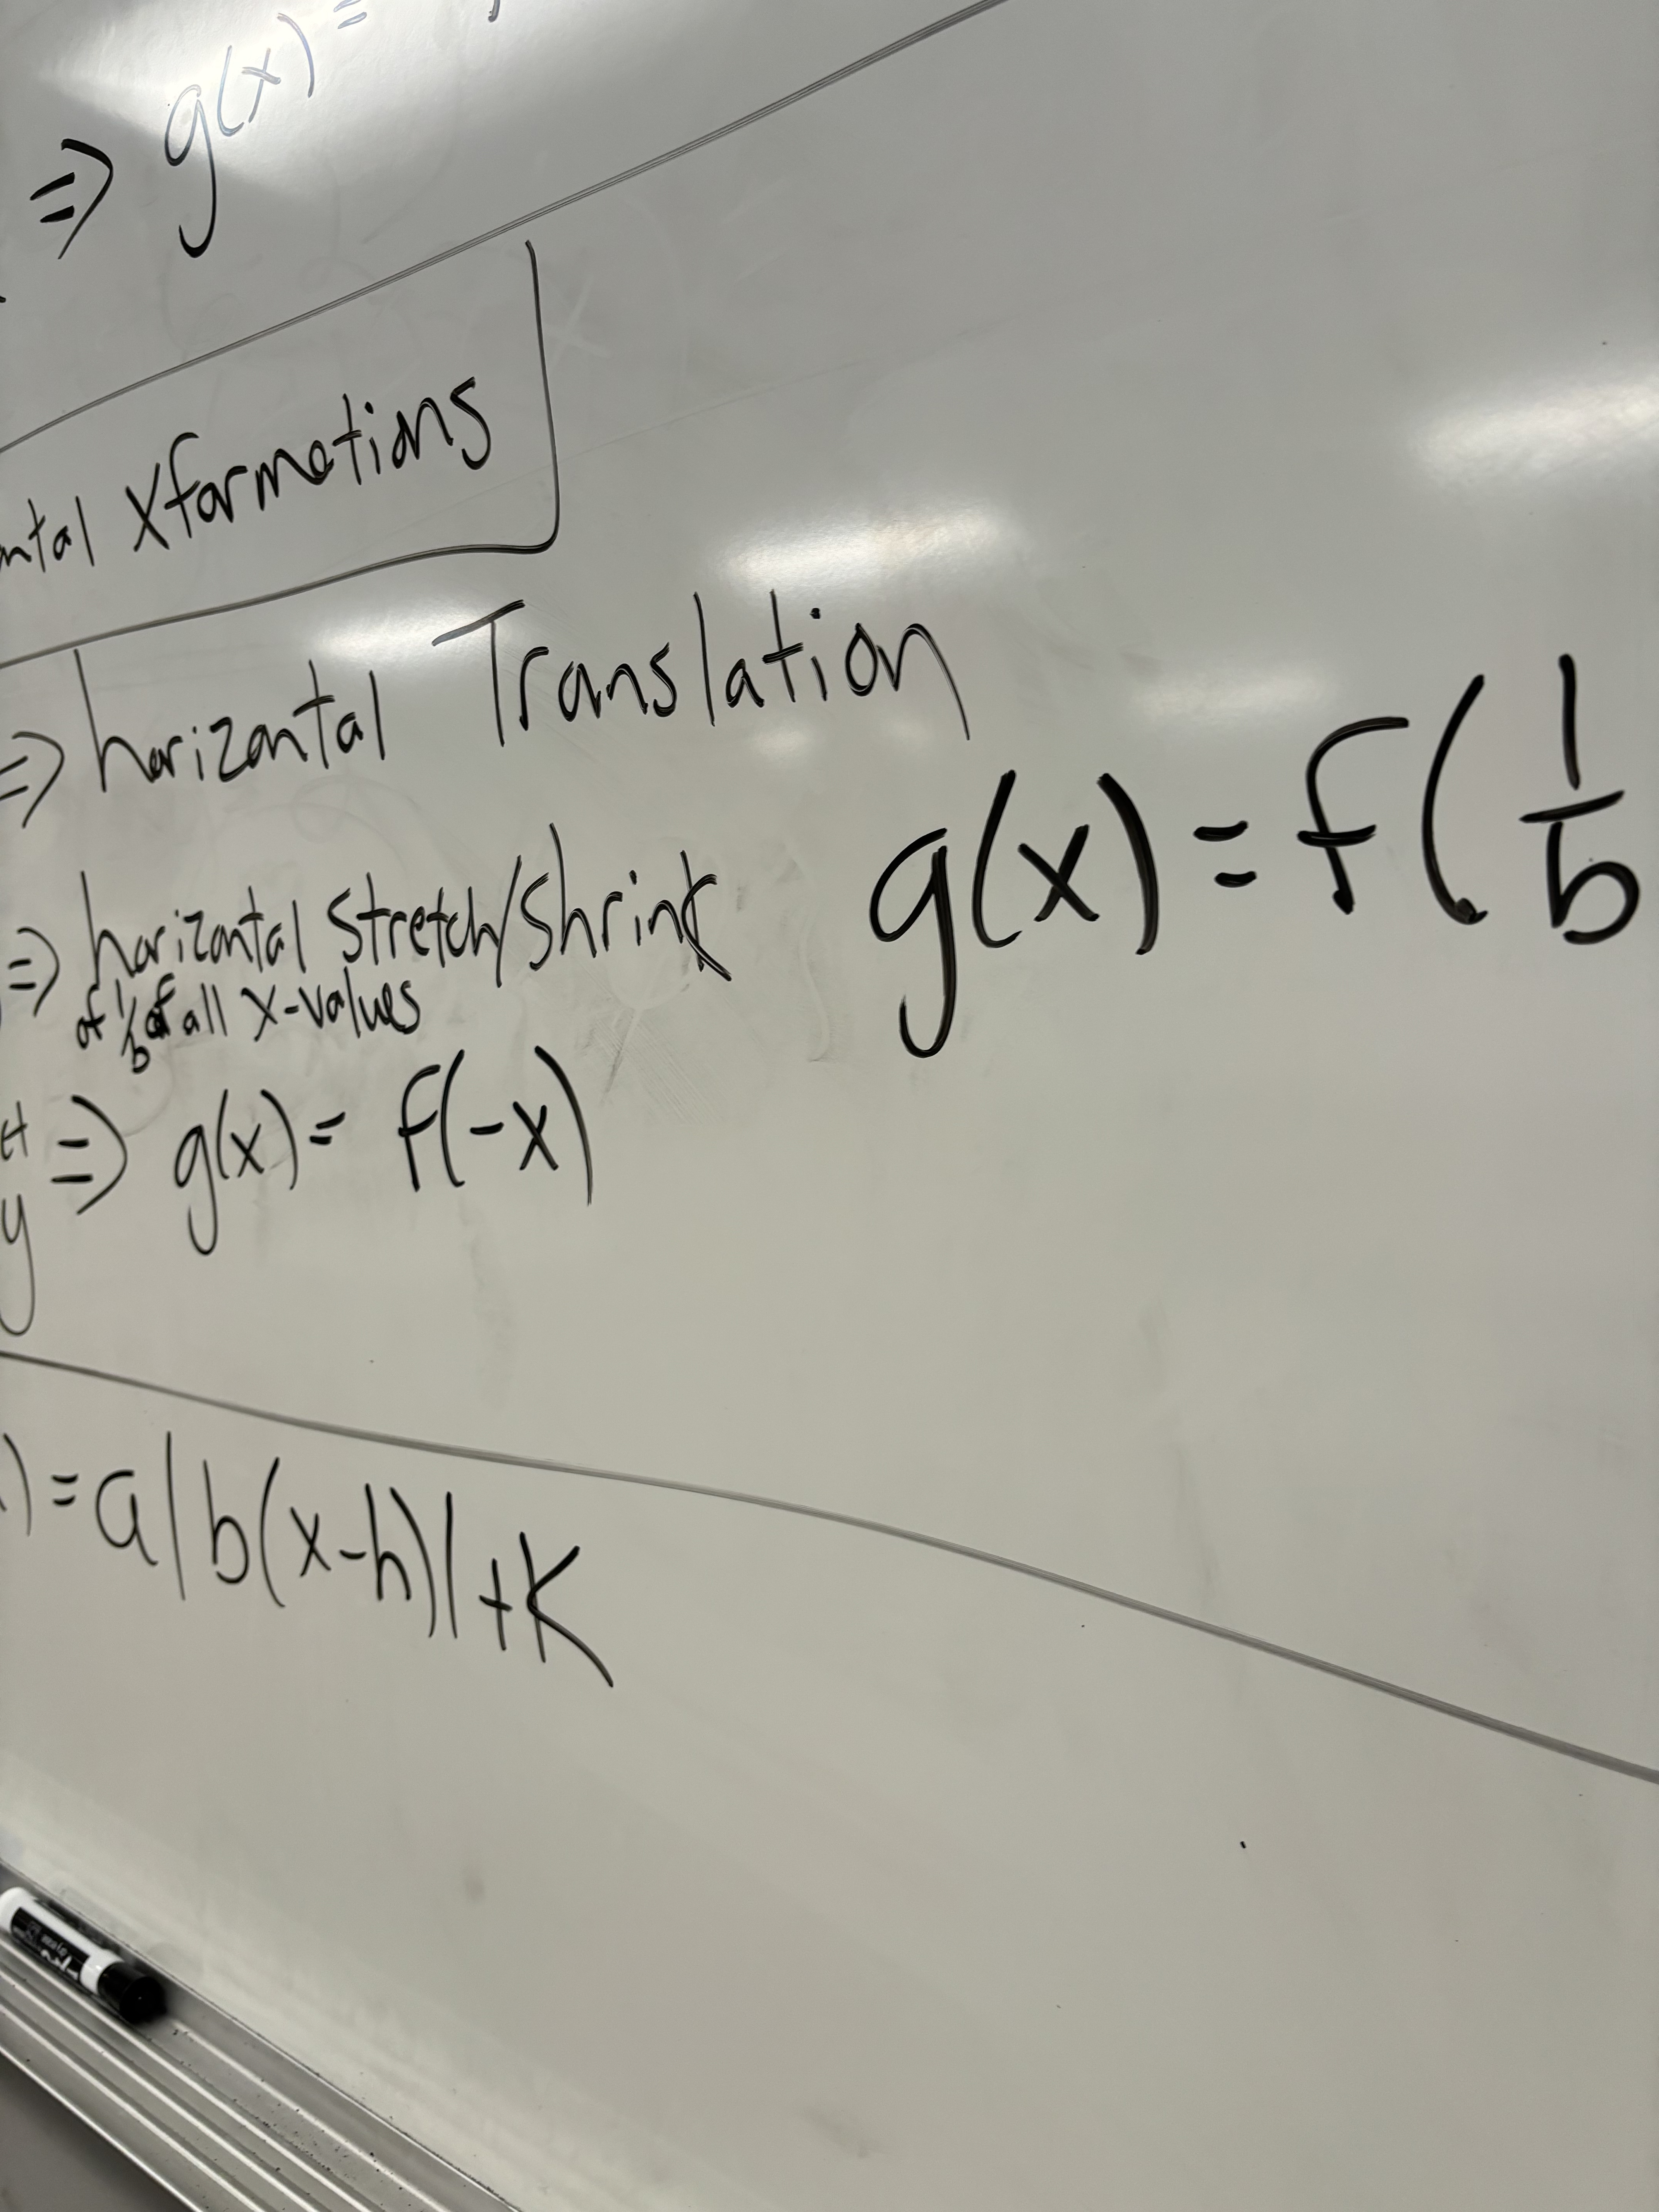 ⇒ g(x) =
ntal Xformations
⇒ horizontal Translation
⇒ horizontal stretch/shrink
of 1/b of all x-values
g(x) = f( 1/b
y ⇒ g(x) = f(-x)
) = a|b(x-h)|+K